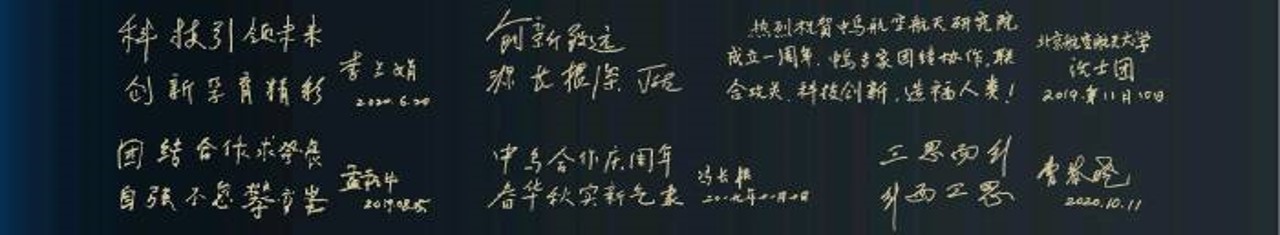 科技引领未来
创新孕育精彩
李兰娟
2020.6.20
创新致远
源长根深
热烈祝贺中乌航空航天研究院
成立一周年,中乌专家团结协作,联
合攻关,科技创新,造福人类!
北京航空航天大学
沈士团
2019年11月10日
团结合作求发展
自强不息攀高峰
2019.08.25
中乌合作庆周年
春华秋实新气象
三思而行
行而三思
曹春晓
2020.10.11